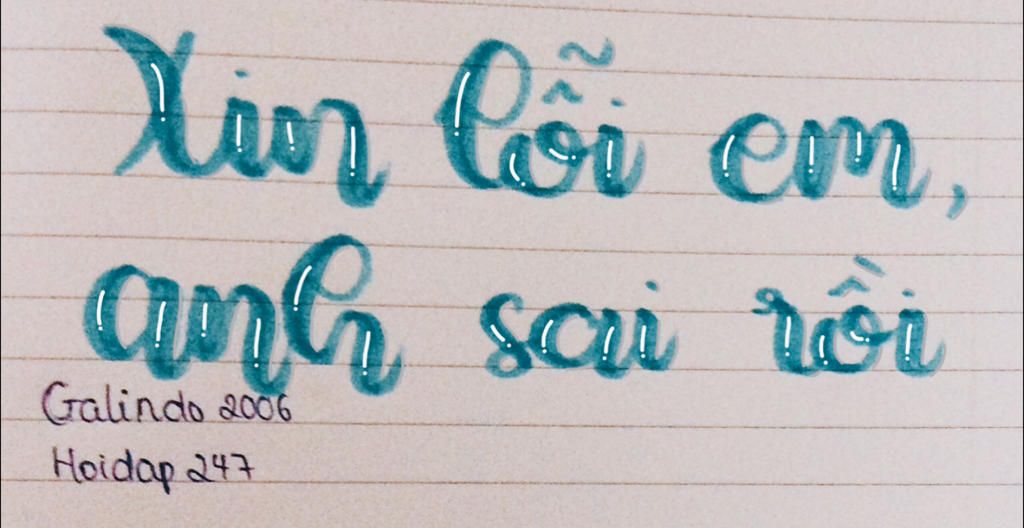 Xin lỗi em,
anh sai rồi
Galindo 2006
Hoidap 247